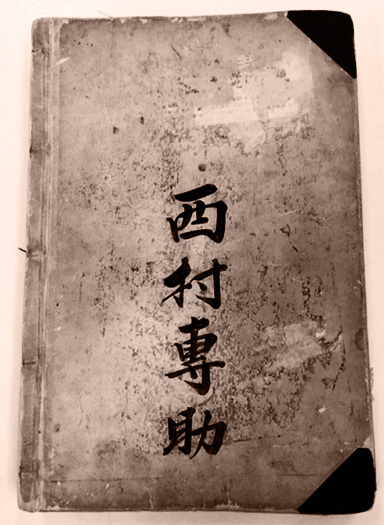 西村專助